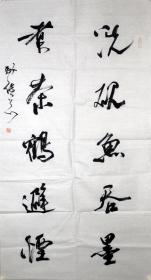 洗砚鱼吞墨
煮茶鹤避烟